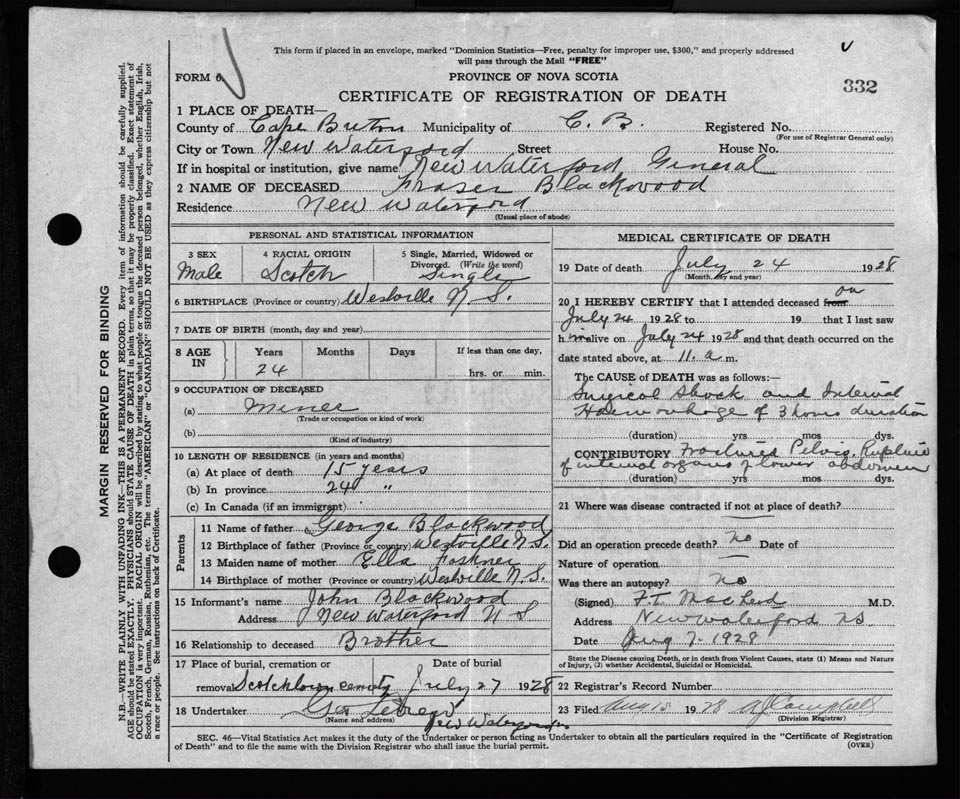 This form if placed in an envelope, marked "Dominion Statistics—Free, penalty for improper use, $300," and properly addressed
will pass through the Mail "FREE"
FORM 6
PROVINCE OF NOVA SCOTIA
332
CERTIFICATE OF REGISTRATION OF DEATH
1 PLACE OF DEATH—
County of Cape Breton Municipality of C. B. Registered No.
(For use of Registrar General only)
City or Town New Waterford Street House No.
If in hospital or institution, give name New Waterford General
2 NAME OF DECEASED Fraser Blackwood
Residence New Waterford
(Usual place of abode)
MARGIN RESERVED FOR BINDING
N.B.—WRITE PLAINLY WITH UNFADING INK—THIS IS A PERMANENT RECORD. Every item of information should be carefully supplied.
AGE should be stated EXACTLY. PHYSICIANS should STATE CAUSE OF DEATH in plain terms, so that it may be properly classified. Exact statement of
OCCUPATION is very important. RACIAL ORIGIN will be described by stating to what people or tongue the deceased person belonged, whether English, Irish,
Scotch, French, German, Russian, Ruthenian, etc. The terms "AMERICAN" or "CANADIAN" SHOULD NOT BE USED as they express citizenship but not
a race or people. See instructions on back of Certificate.
PERSONAL AND STATISTICAL INFORMATION
3 SEX
Male
4 RACIAL ORIGIN
Scotch
5 Single, Married, Widowed or
Divorced. (Write the word)
Single
6 BIRTHPLACE (Province or country) Westville N.S.
7 DATE OF BIRTH (month, day and year)
8 AGE IN
Years Months Days If less than one day,
24 hrs. or min.
9 OCCUPATION OF DECEASED
(a) Miner
(Trade or occupation or kind of work)
(b)
(Kind of industry)
10 LENGTH OF RESIDENCE (in years and months)
(a) At place of death 15 years
(b) In province 24 "
(c) In Canada (if an immigrant)
Parents
11 Name of father George Blackwood
12 Birthplace of father (Province or country) Westville N.S.
13 Maiden name of mother Ella
14 Birthplace of mother (Province or country) Westville N.S.
15 Informant's name John Blackwood
Address New Waterford N S
16 Relationship to deceased Brother
17 Place of burial, cremation or Date of burial
removal Scotchtown July 27 1928
18 Undertaker
(Name and address) New Waterford
MEDICAL CERTIFICATE OF DEATH
19 Date of death July 24 1928
(Month, day and year)
20 I HEREBY CERTIFY that I attended deceased from on
July 24 1928 to 19 that I last saw
him alive on July 24 1928 and that death occurred on the
date stated above, at 11. a m.
The CAUSE of DEATH was as follows:—
Surgical Shock and Internal
Haemorrhage of 3 hours duration
(duration) yrs mos dys.
CONTRIBUTORY Fractured Pelvis, Rupture
of internal organs of lower abdomen
(duration) yrs. mos. dys.
21 Where was disease contracted if not at place of death?
Did an operation precede death? no Date of
Nature of operation
Was there an autopsy? no
(Signed) F.T. MacLeod M.D.
Address New Waterford NS.
Date Aug 7. 1928
State the Disease causing Death, or in death from Violent Causes, state (1) Means and Nature
of Injury, (2) whether Accidental, Suicidal or Homicidal.
22 Registrar's Record Number
23 Filed Aug 1928 Campbell
(Division Registrar)
SEC. 46—Vital Statistics Act makes it the duty of the Undertaker or person acting as Undertaker to obtain all the particulars required in the "Certificate of Registration
of Death" and to file the same with the Division Registrar who shall issue the burial permit.
(OVER)